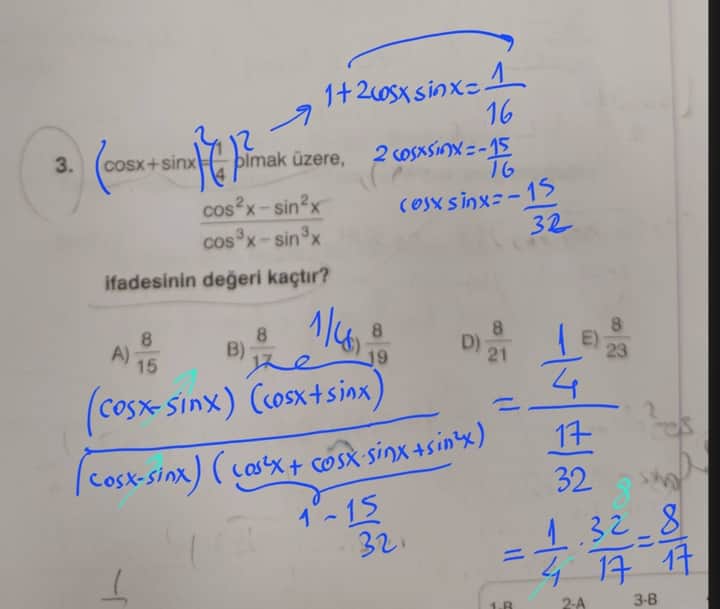 1+2cosxsinx=1/16
3. (cosx+sinx)²=(1/4)² olmak üzere,
2cosxsinx=-15/16
cosxsinx=-15/32
cos²x-sin²x
cos³x-sin³x
ifadesinin değeri kaçtır?
A) 8/15 B) 8/17 C) 8/19 D) 8/21 E) 8/23
1/4
(cosx-sinx) (cosx+sinx)
(cosx-sinx) (cos²x+cosx·sinx+sin²x)
= 1/4 / 17/32
1-15/32
= 1/4 · 32/17 = 8/17
8
1-B 2-A 3-B